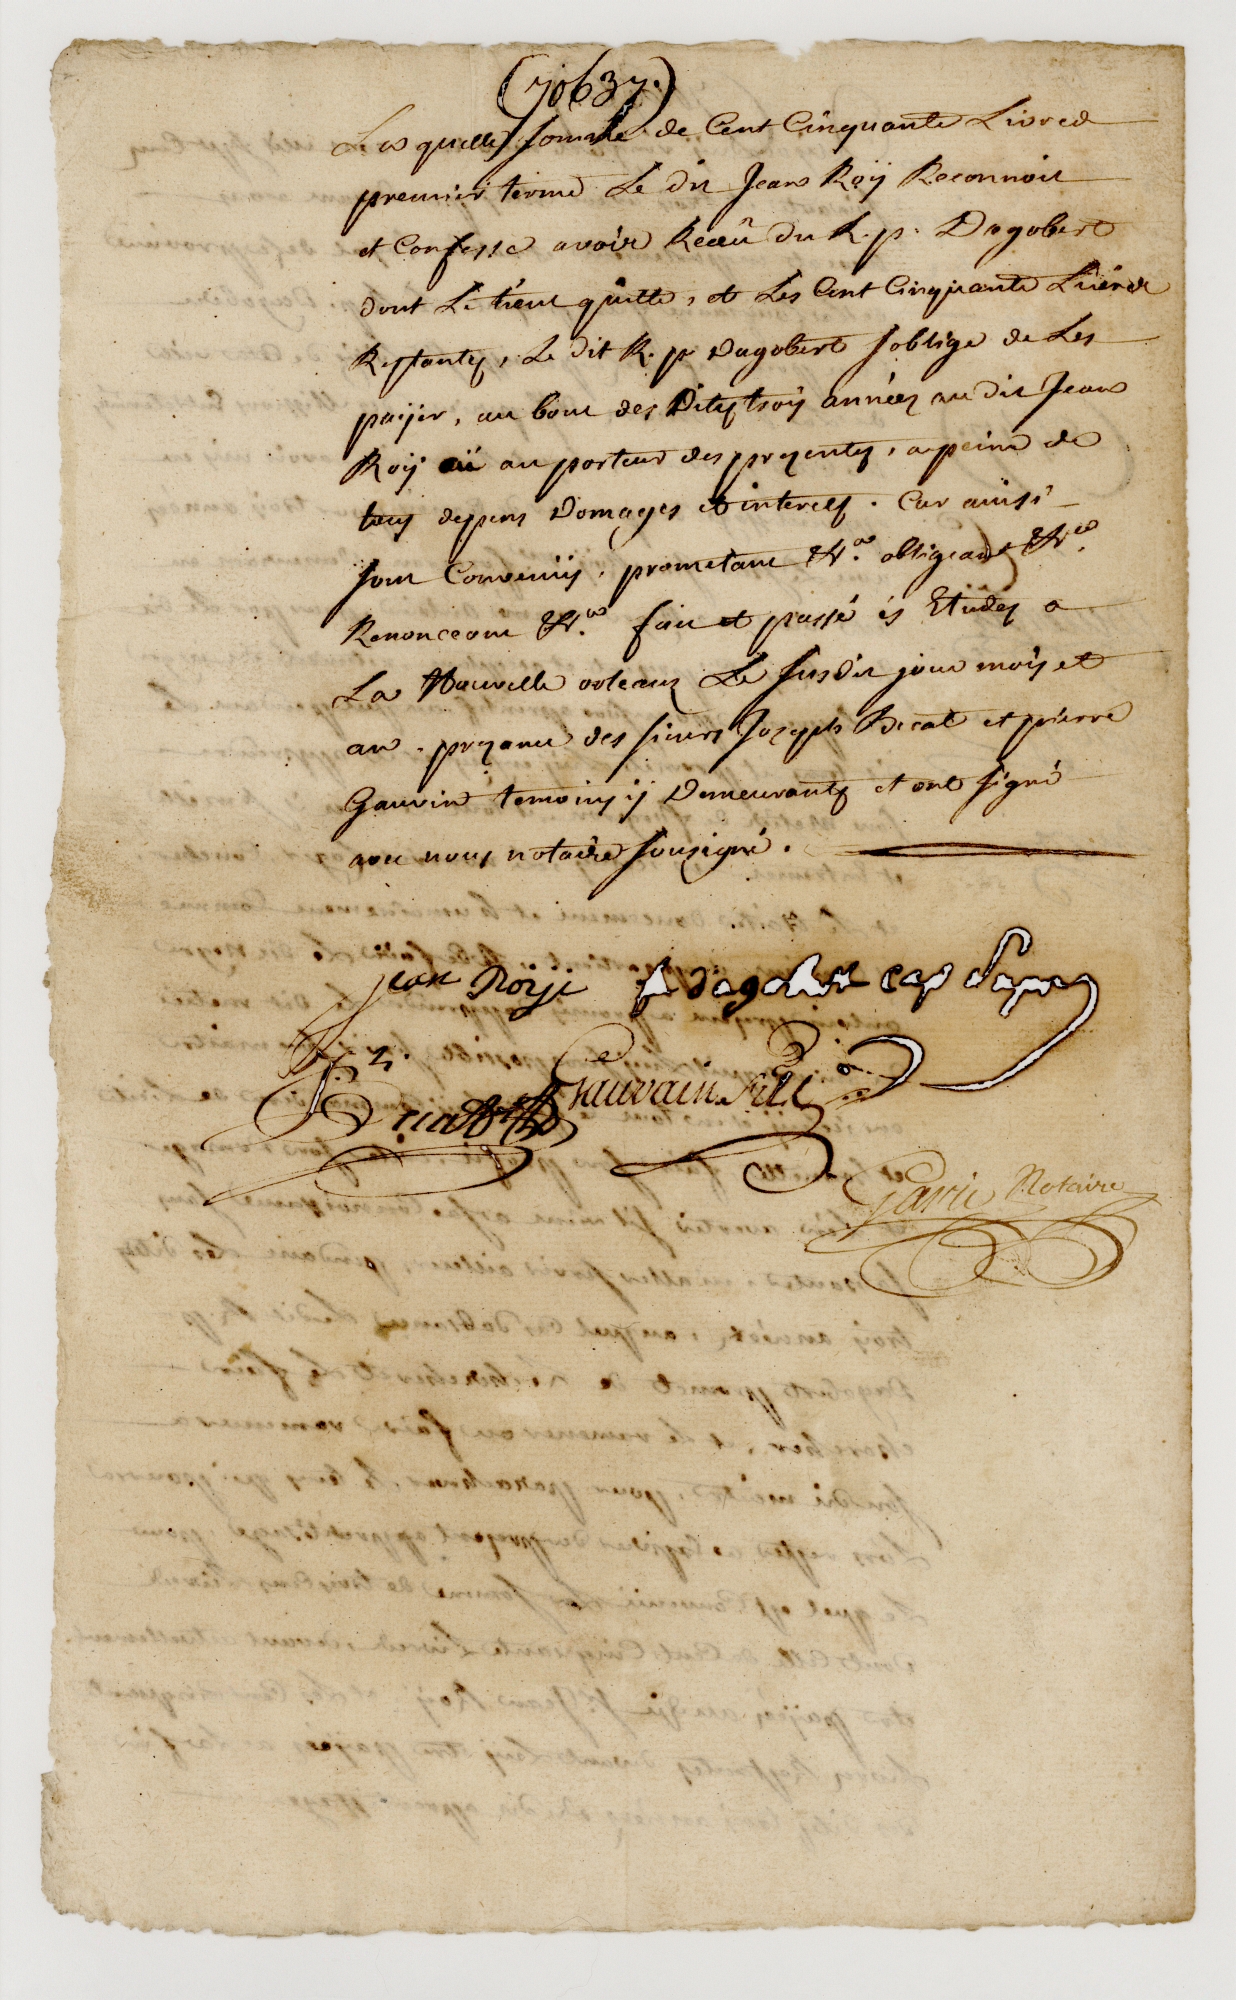 (70637.)
Laquelle somme de Cent Cinquante Livres
premier terme Le dit Jean Roÿ Reconnoit
et Confesse avoir Receû du R. p. Dagobert
dont Le tient quitte, et Les Cent Cinquante Livres
Restantes, Le dit R. p. Dagobert s'oblige de Les
païjer, au bout des Dites trois années au dit Jean
Roij où au porteur des presentes, a peine de
tous depens Domages et interets. Car ainsi
sont Convenus, prometant &a. obligeant &a.
Renonceant &a. fait et passé és Etudes a
La Nouvelle orleans Le susdit jour mois et
an. presance des sieurs Joseph Becat et pierre
Gauvin temoins ij Demeurants et ont signé
avec nous notaire sousigné.
jean Roye f dagobert cap Sup
Becat
Gauvain fils
Garic Notaire